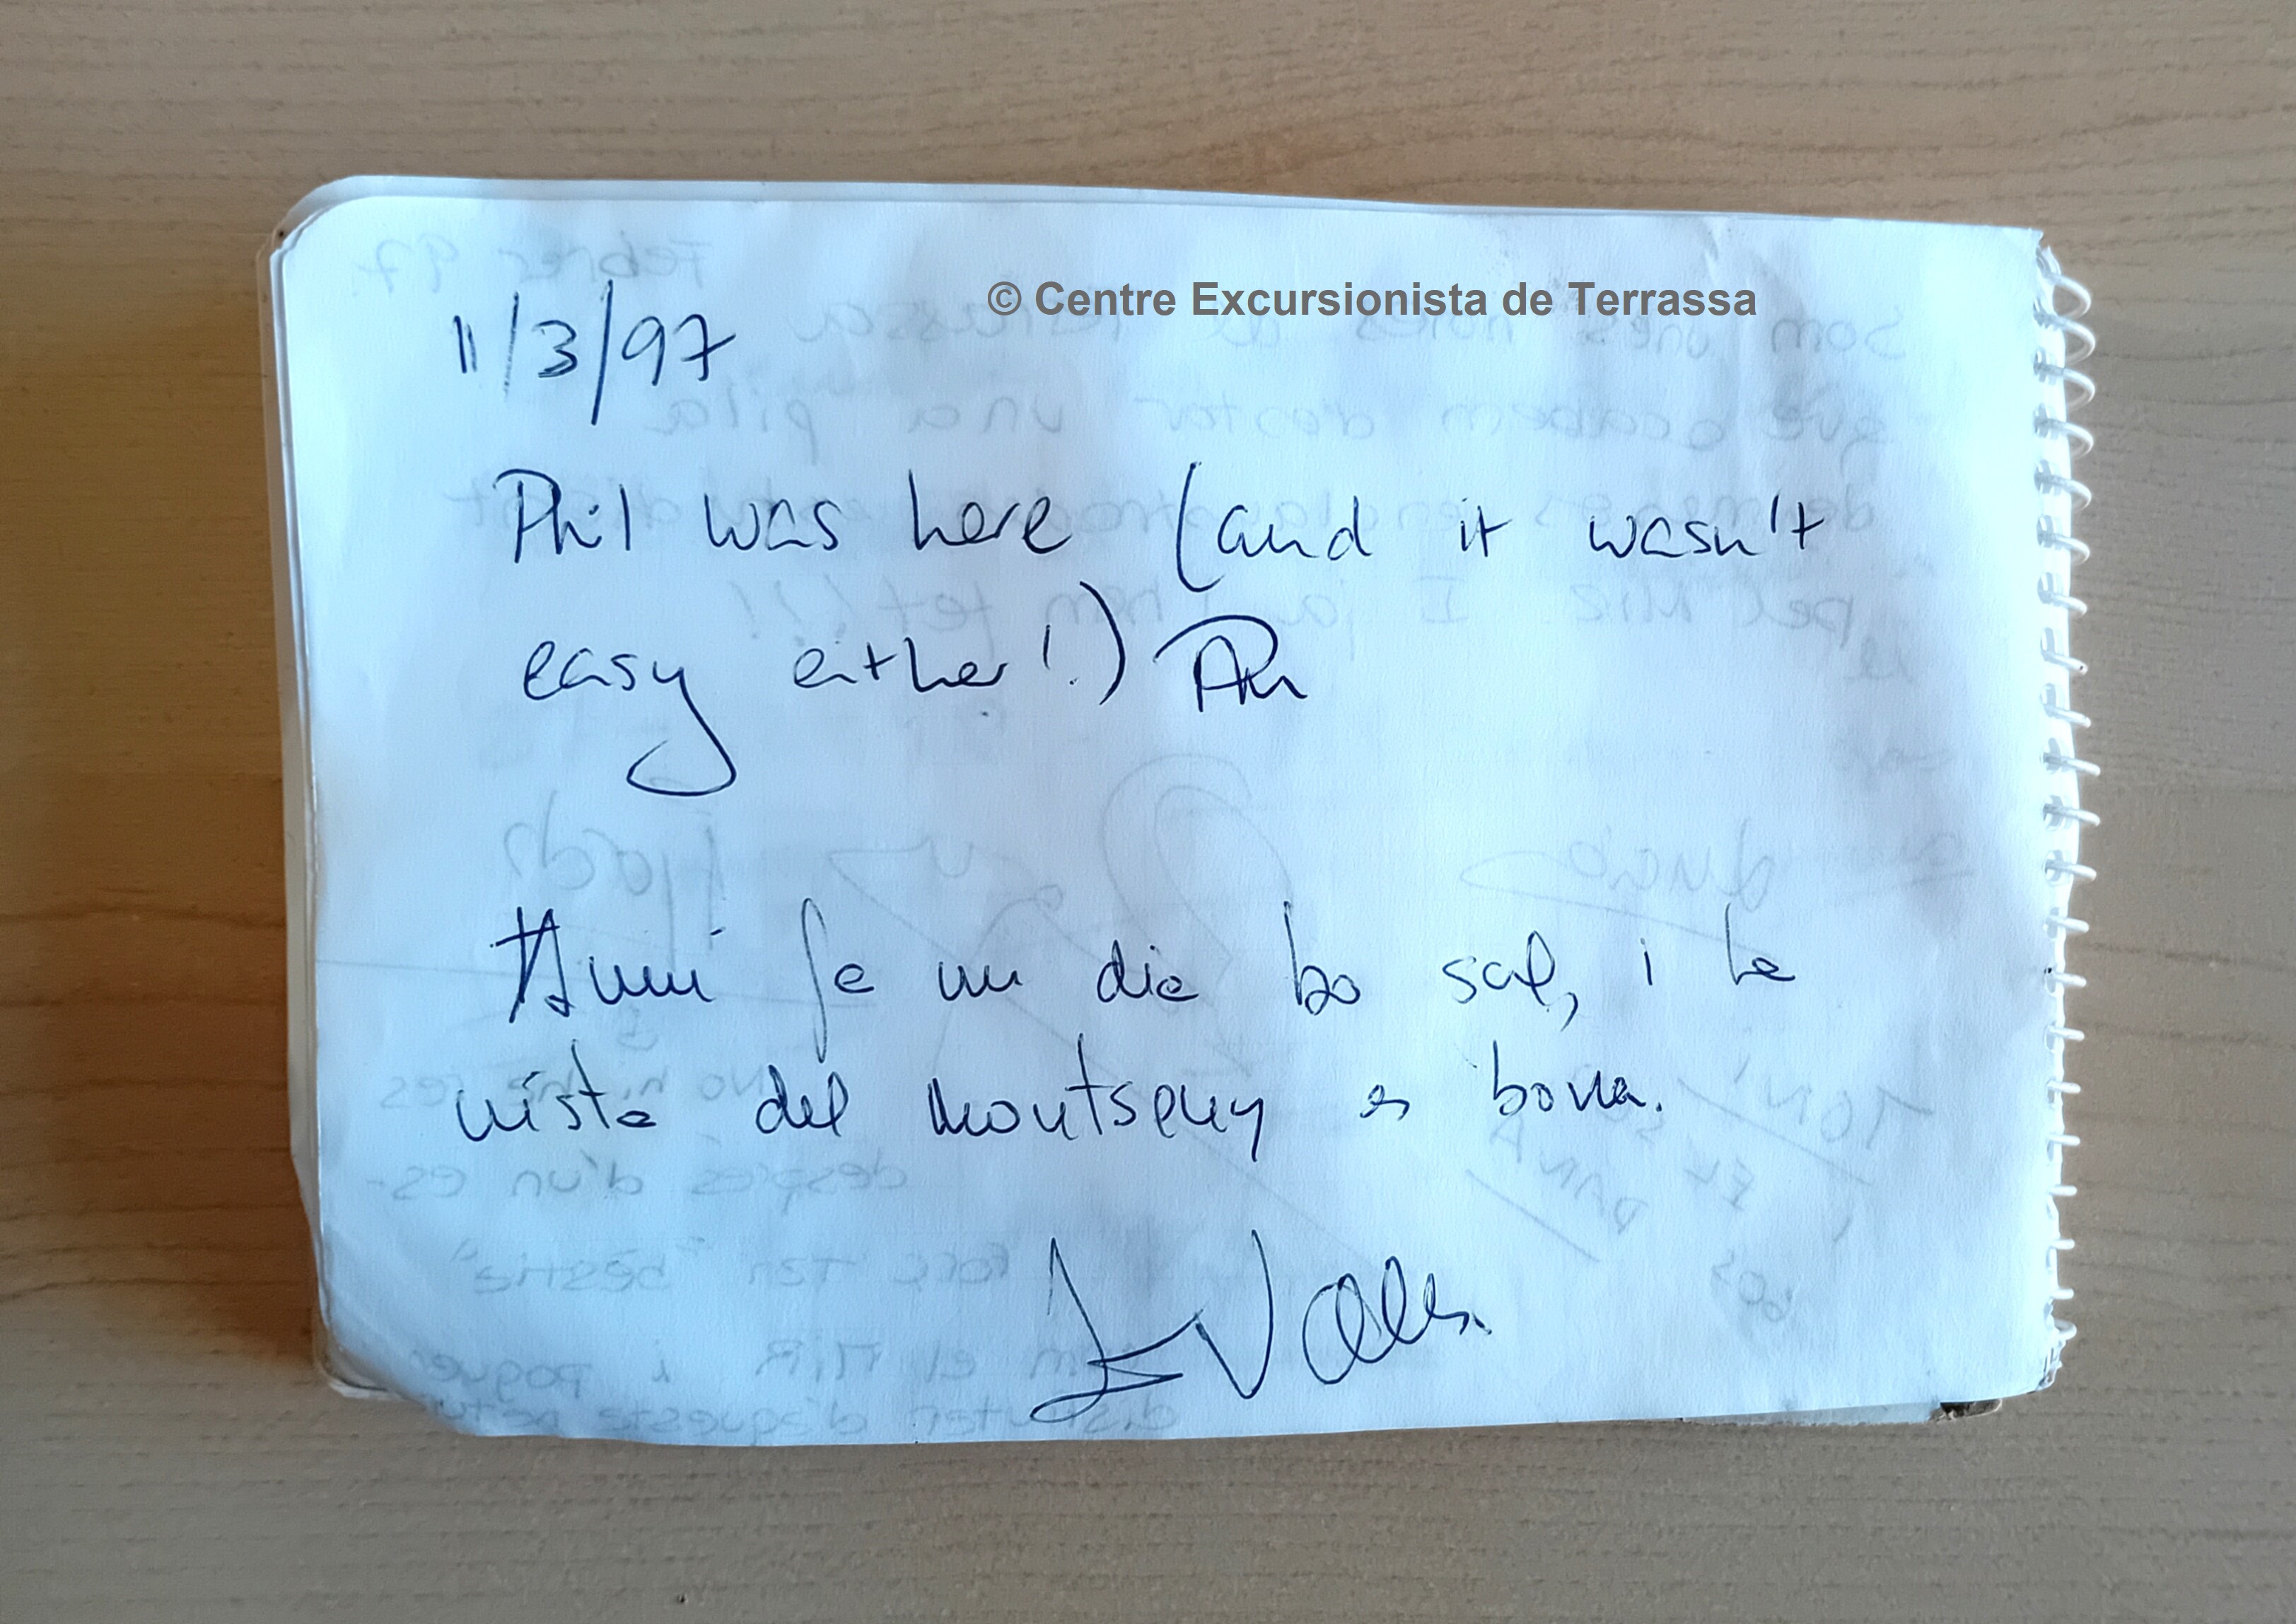 © Centre Excursionista de Terrassa
11/3/97
Phil was here (and it wasn't
easy either!)
Avui fa un dia bo sol, i la
vista del Montseny es bona.